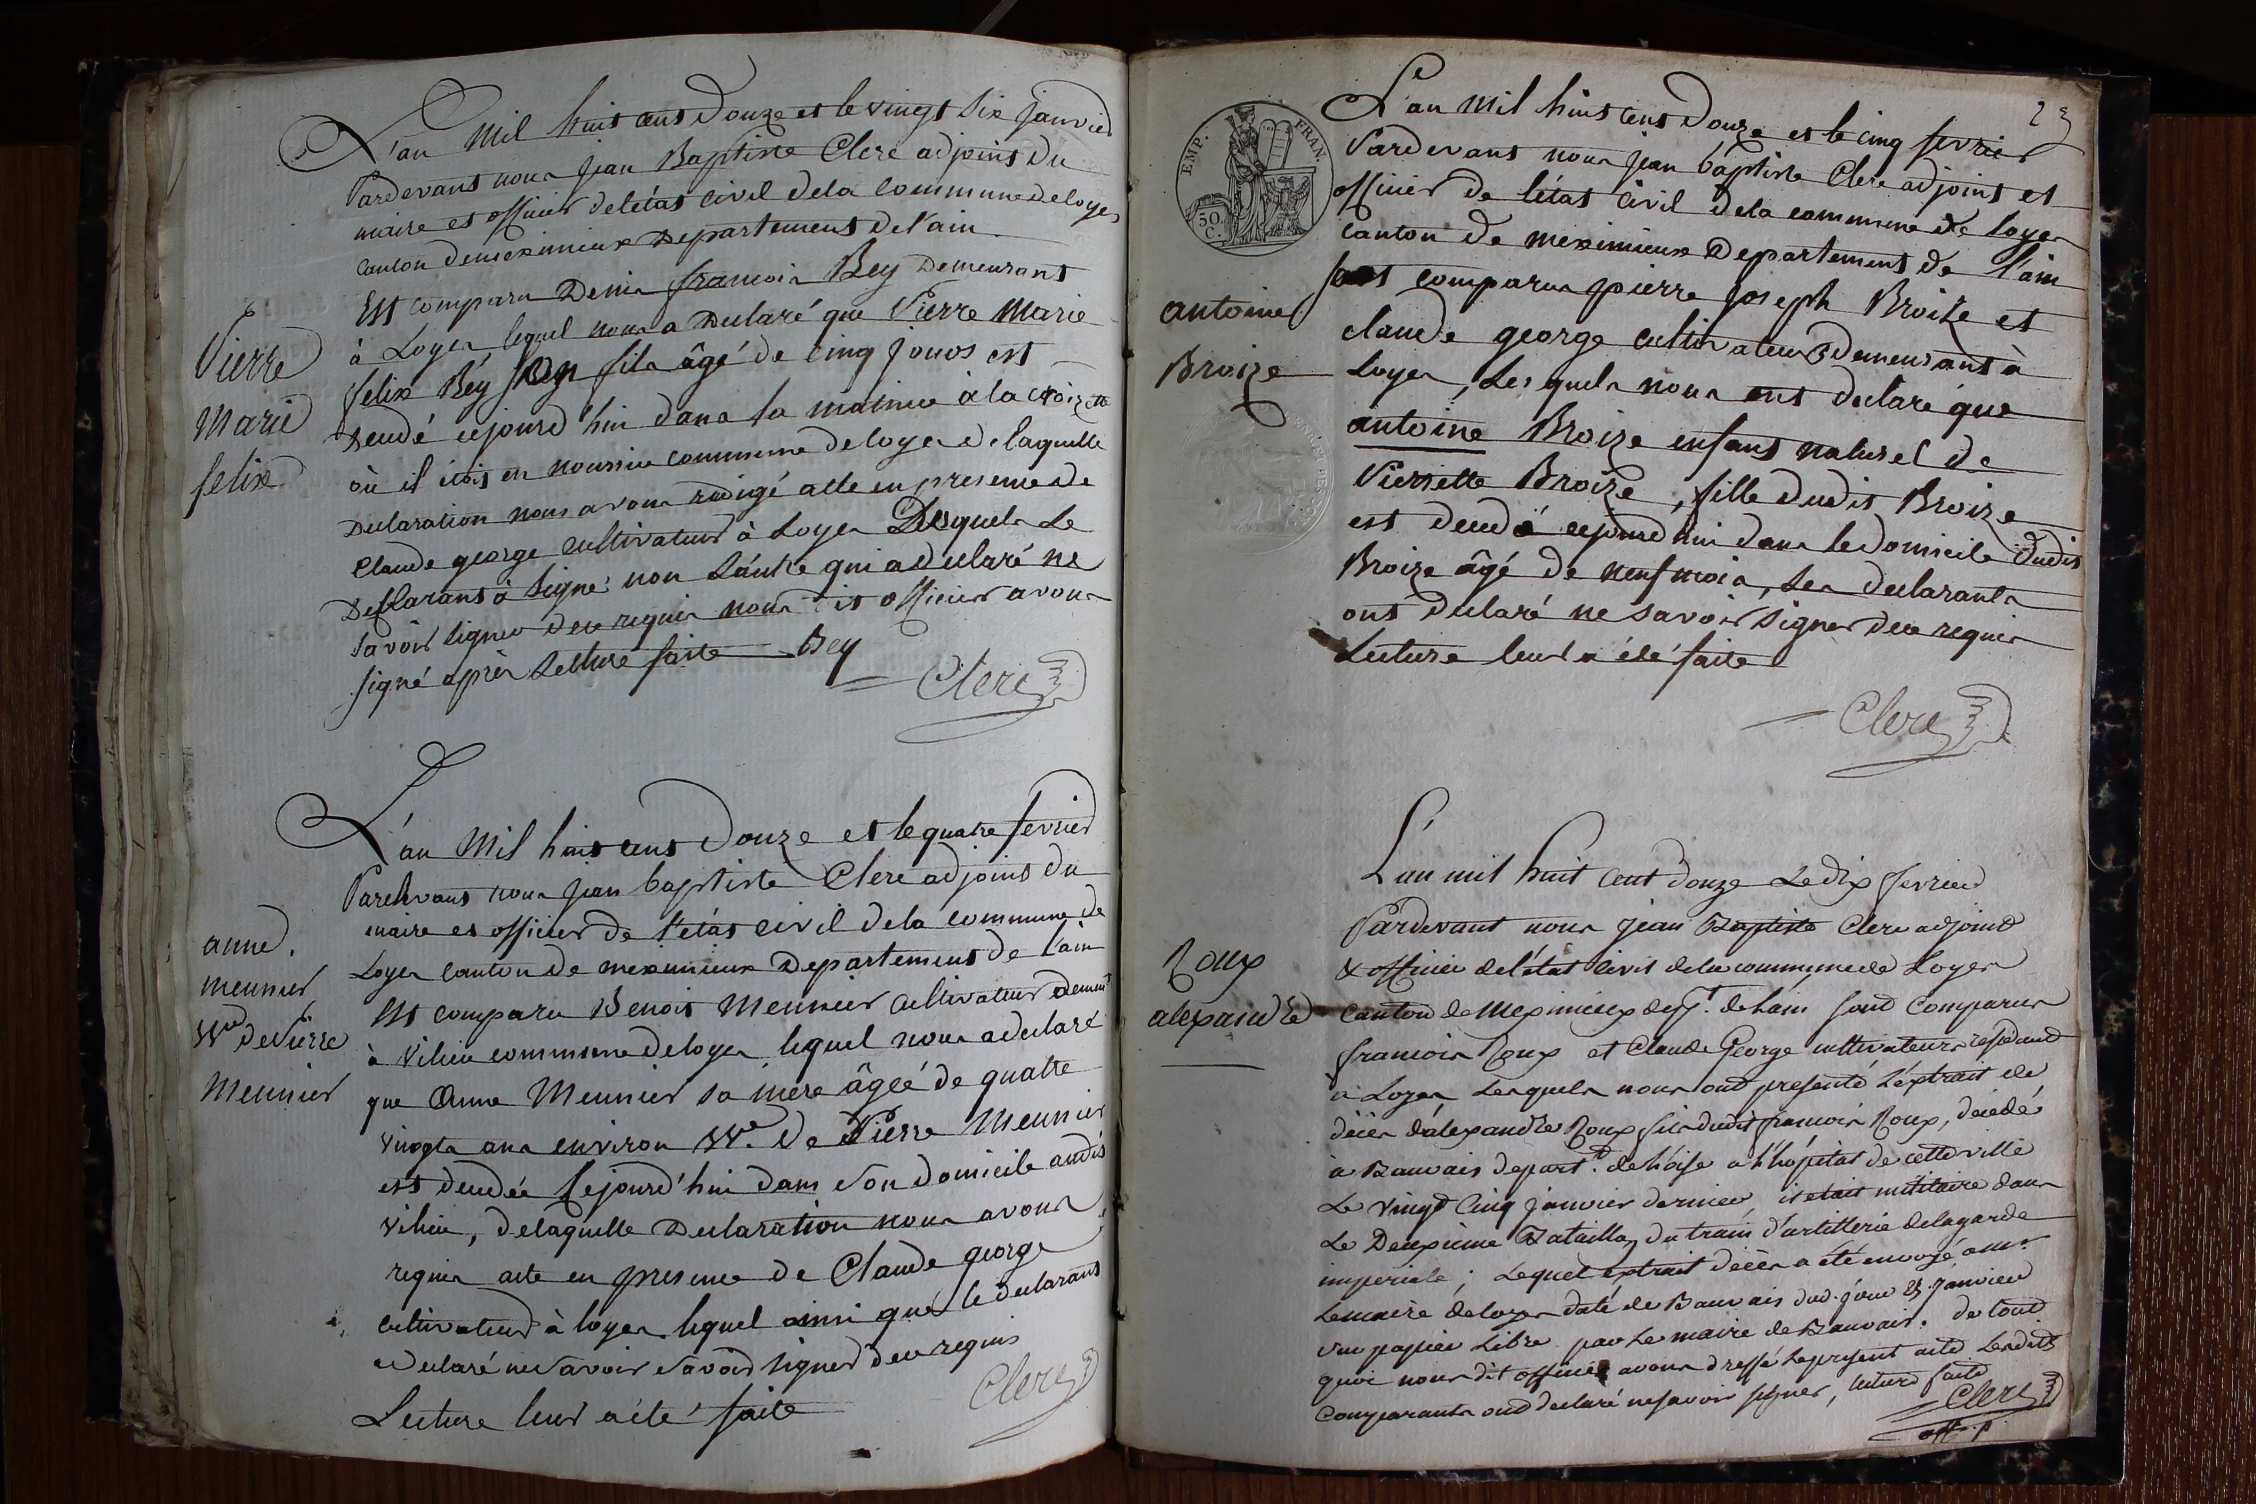 L'an Mil huit cens Douze et le vingt Six janvier
Pardevant nous jean Baptiste Clerc adjoint du
maire et officier de létat civil dela Commune deloyes
Canton demeximieux Departement de l'ain
Est comparu Denis françois Bey Demeurant
à Loyes lequel nous a Declaré que Pierre Marie
felix Béy son fils âgé de cinq jours est
Decedé cejourd'hui dans la matinée à la croizette
où il étoit en nourrice commune deloyes delaquelle
Declaration nous avons redigé acte en presence de
Claude george cultivateur à Loyes Desquels Le
Declarant à signé non L'autre qui a declaré ne
savoir signer dece requis nous dit officier avons
signé après Lecture faite Bey
Clerc
Pierre
Marie
felix
L'an Mil huit cens Douze et le quatre fevrier
Pardevant nous jean baptiste Clerc adjoint du
maire et officier de l'état civil dela commune de
Loyes canton de meximieux Departement de l'ain
Est comparu Benoit Meunier cultivateur demeurt
à Vilieu commune deloyes lequel nous a declaré
que Anne Meunier sa mere âgée de quatre
vingts ans environ Ve. de Pierre Meunier
est decedée Cejourd'hui dans son domicile audit
vilieu, delaquelle Declaration nous avons
requis acte en presence de Claude george
cultivateur à loyes lequel ainsi que le declarant
a declaré ne savoir savoir signer dece requis
Lecture leur a été faite
Clerc
anne
meunier
Ve de Pierre
Meunier
23
EMP. FRAN.
50. C.
L'an Mil huit cens Douze et le cinq fevrier
Pardevant nous jean baptiste Clerc adjoint et
officier de létat civil dela commune de Loyes
Canton de meximieux Departement de l'ain
sont comparus pierre joseph Broize et
claude george cultivateurs demeurant à
Loyes, Lesquels nous ont declaré que
antoine Broize enfant naturel de
Pierrette Broize, fille dudit Broize
est decedé cejourd'hui dans le domicile dudit
Broize âgé de neuf mois, Les declarants
ont declaré ne savoir signer dece requis
Lecture leur a été faite
Clerc
antoine
Broize
L'an mil huit cent douze Le dix fevrier
Pardevant nous jean Baptiste Clerc adjoint
& officier del'état civil dela commune de Loyes
Canton de Meximieux dept. de l'ain sont comparus
francois Roux et Claude George cultivateurs résidant
à Loyes Lesquels nous ont presenté L'extrait de
décès d'alexandre Roux fils dudit francois Roux, décédé
à Beauvais depart.t de l'oise a l'hôpital de cette ville
Le vingt cinq janvier dernier, il etait militaire dans
Le Deuxieme Bataillon du train d'artillerie delagarde
imperiale; Lequel extrait décès a été envoyé a mr.
Lemaire de loyes daté de Beauvais dud. jour 25. janvier
sur papier Libre par Le maire de Beauvais. de tout
quoi nous dit officier avons dressé Le present acte Lesdits
Comparants ont declaré ne savoir signer, lecture faite
Clerc
off. p.
Roux
alexandre